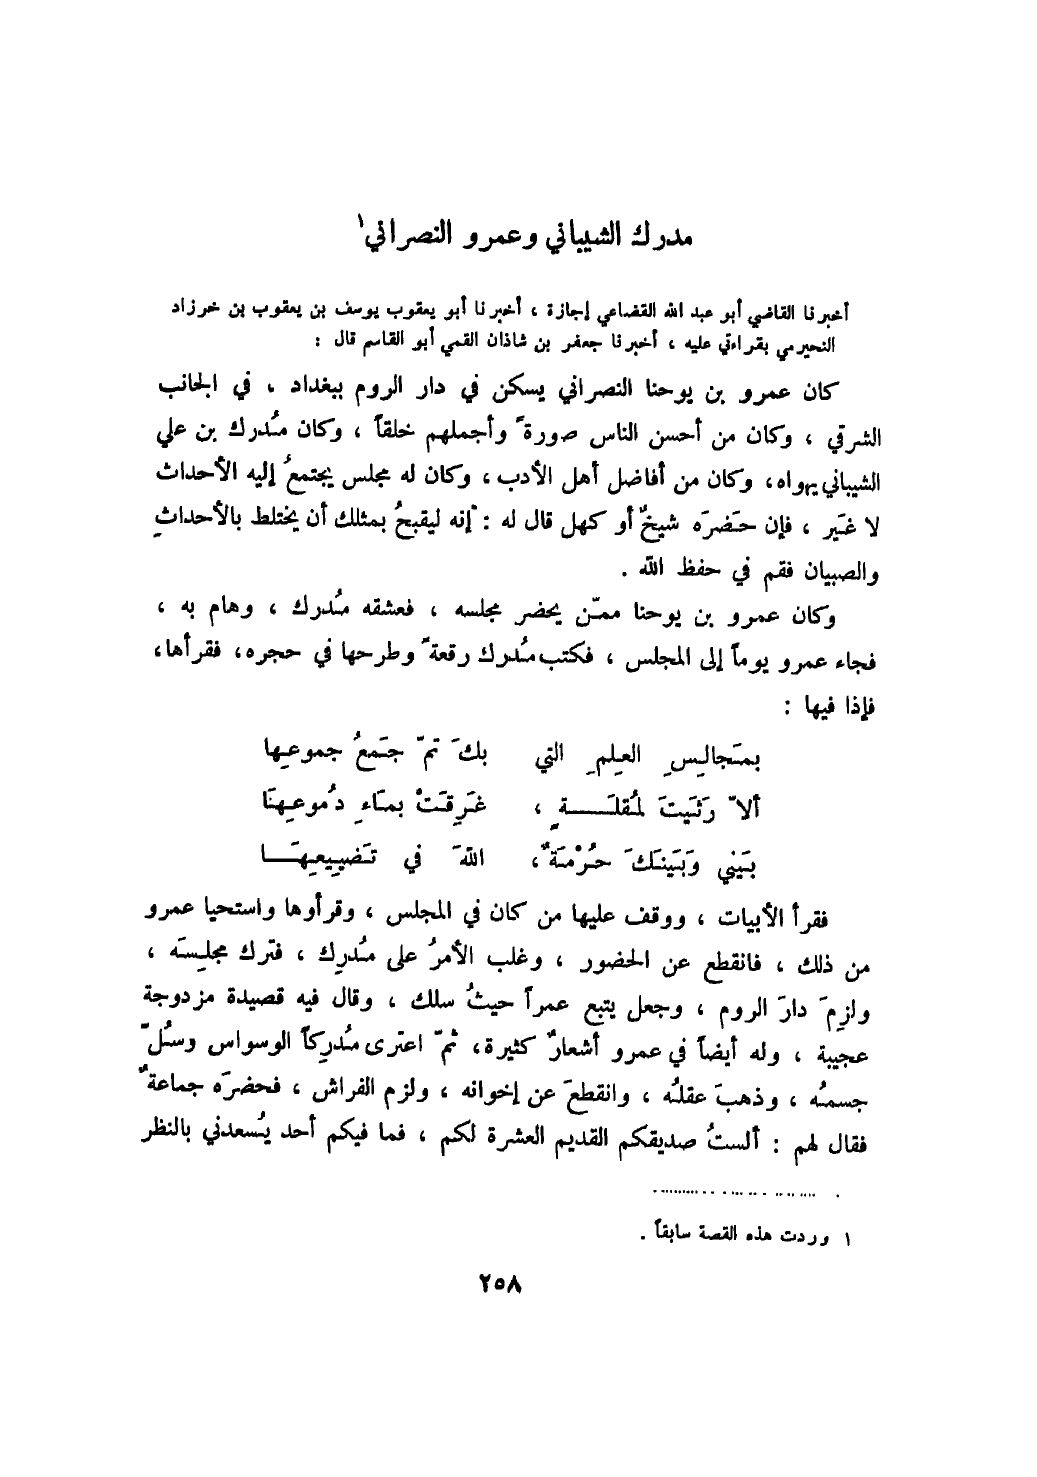 مدرك الشيباني وعمرو النصراني١
أخبرنا القاضي أبو عبد الله القضاعي إجازة ، أخبرنا أبو يعقوب يوسف بن يعقوب بن خرزاد
النحيرمي بقراءتي عليه ، أخبرنا جعفر بن شاذان القمي أبو القاسم قال :
كان عمرو بن يوحنا النصراني يسكن في دار الروم ببغداد ، في الجانب
الشرقي ، وكان من أحسن الناس صورةً وأجملهم خلقاً ، وكان مُدرك بن علي
الشيباني يهواه، وكان من أفاضل أهل الأدب ، وكان له مجلس يجتمعُ إليه الأحداث
لا غَير ، فإن حَضرَه شيخٌ أو كهل قال له : إنه ليقبحُ بمثلك أن يختلط بالأحداثِ
والصبيان فقم في حفظ الله .
وكان عمرو بن يوحنا ممّن يحضر مجلسه ، فعشقه مُدرك ، وهام به ،
فجاء عمرو يوماً إلى المجلس ، فكتب مُدرك رقعةً وطرحها في حجره، فقرأها،
فإذا فيها :
بمَجالِسِ العِلمِ التي بكَ تمّ جَمعُ جموعِها
ألاّ رَثَيتَ لمُقلَـــةٍ ، غَرِقَتْ بمَاءِ دُموعِهَا
بَيني وَبَينَكَ حُرْمَةٌ، اللهَ في تَضييعِهَــا
فقرأ الأبيات ، ووقف عليها من كان في المجلس ، وقرأوها واستحيا عمرو
من ذلك ، فانقطع عن الحضور ، وغلب الأمرُ على مُدرِك ، فترك مجلِسَه ،
ولزِمَ دارَ الروم ، وجعل يتبع عمراً حيثُ سلك ، وقال فيه قصيدة مزدوجة
عجيبة ، وله أيضاً في عمرو أشعارٌ كثيرة، ثمّ اعترى مُدرِكاً الوسواس وسُلّ
جسمُه ، وذهبَ عقلُه ، وانقطعَ عن إخوانه ، ولزم الفراش ، فحضرَه جماعةٌ
فقال لهم : ألستُ صديقكم القديم العشرة لكم ، فما فيكم أحد يُسعدني بالنظر
١ وردت هذه القصة سابقاً .
٢٥٨